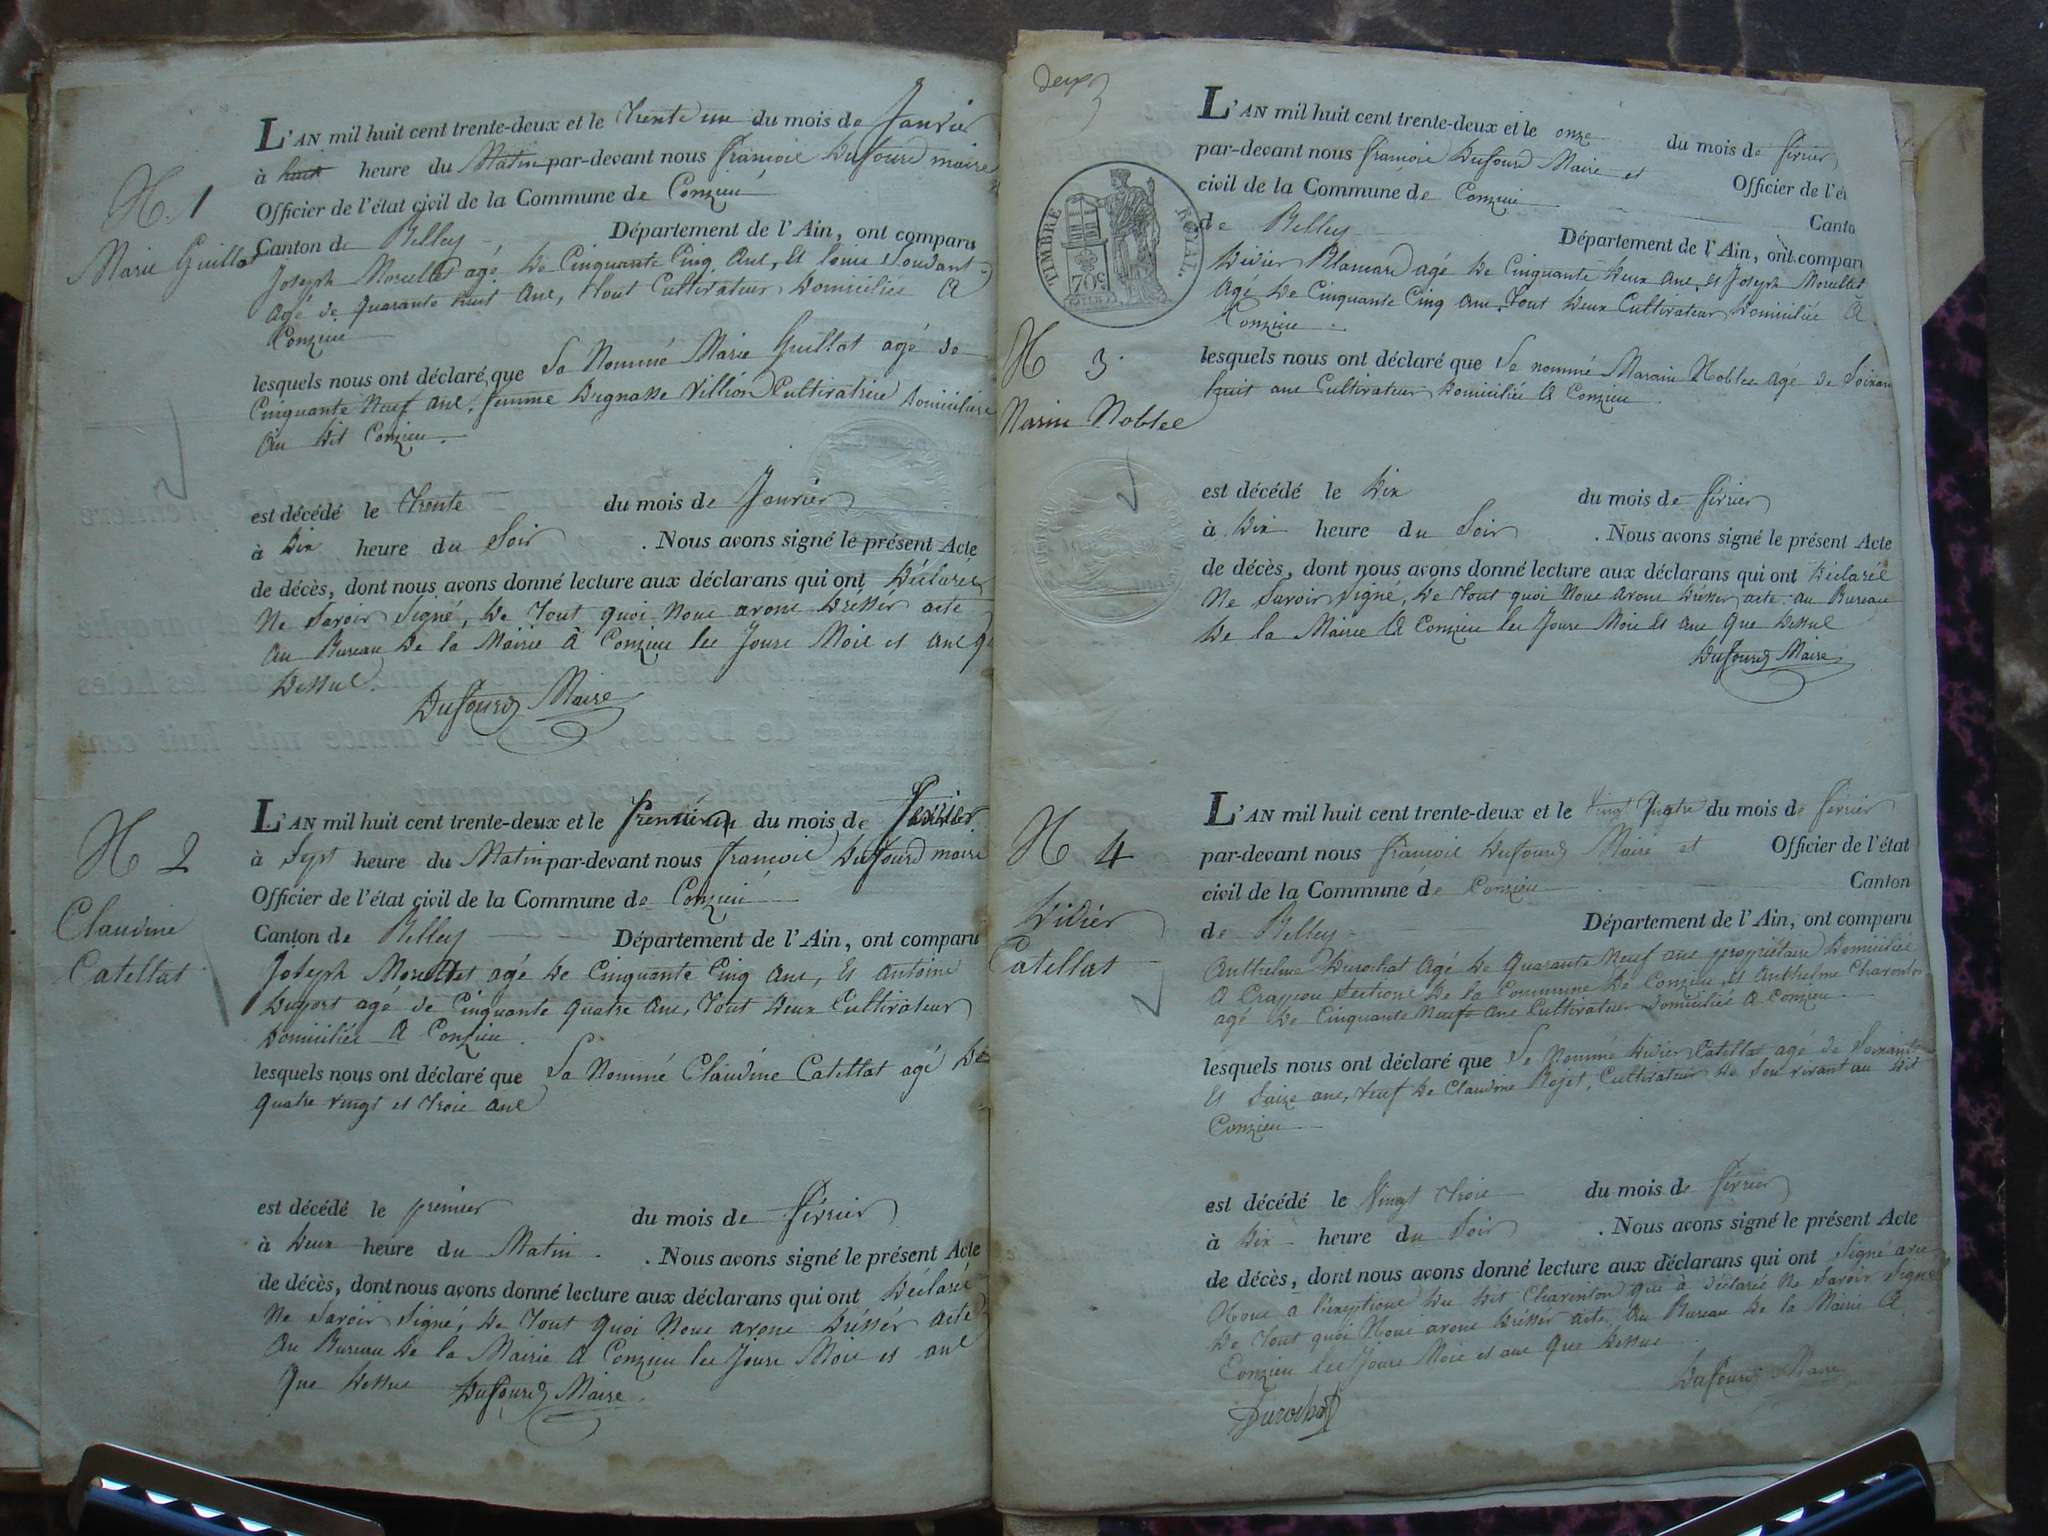 N. 1
Marie Guillot
L'AN mil huit cent trente-deux et le trente un du mois de Janvier
à huit heure du Matin par-devant nous francois Dufourd maire
Officier de l'état civil de la Commune de Conzieu
Canton de Belley Département de l'Ain, ont comparu
Joseph Morellet agé De Cinquante Cinq ans, Et louis Soudant
agé de quarante huit ans, tout Cultivateur Domiciliés A
Conzieu
lesquels nous ont déclaré que La Nommé Marie Guillot agé de
Cinquante Neuf ans, femme Dignasse Villion Cultivatrice Domiciliée
Au Dit Conzieu.
est décédé le trente du mois de Janvier
à Dix heure du Soir . Nous avons signé le présent Acte
de décès, dont nous avons donné lecture aux déclarans qui ont Déclarés
Ne Savoir Signé, De tout quoi Nous avons Drésser acte
Au Bureau De la Mairie à Conzieu les Jours Mois et ans q
Dessus.
Dufourd Maire
N 2
Claudine
Catellat
L'AN mil huit cent trente-deux et le premier du mois de
à Sept heure du Matin par-devant nous francois Dufourd maire
Officier de l'état civil de la Commune de Conzieu
Canton de Belley Département de l'Ain, ont comparu
Joseph Morellet agé De Cinquante Cinq ans, Et Antoine
Duport agé de Cinquante quatre ans, tout Deux Cultivateur
Domiciliés A Conzieu.
lesquels nous ont déclaré que La Nommé Claudine Catellat agé De
quatre vingt et trois ans
est décédé le premier du mois de février
à Deux heure du Matin . Nous avons signé le présent Acte
de décès, dont nous avons donné lecture aux déclarans qui ont Déclaré
Ne Savoir Signé, De tout quoi Nous avons Drésser acte
Au Bureau De la Mairie A Conzieu les Jours Mois et ans
que Dessus Dufourd Maire
deux
3
TIMBRE ROYAL.
70c
N 3
Marin Noblet
L'AN mil huit cent trente-deux et le onze du mois de février
par-devant nous francois Dufourd Maire et Officier de l'é
civil de la Commune de Conzieu Canto
de Belley Département de l'Ain, ont compar
Didier Blancard agé De Cinquante Deux ans, et Joseph Morellet
Agé De Cinquante Cinq ans tout Deux Cultivateur Domiciliés A
Conzieu.
lesquels nous ont déclaré que Le nommé Marin Noblet agé de Soixan
huit ans Cultivateur Domicilié A Conzieu.
est décédé le Dix du mois de février
à Dix heure du Soir . Nous avons signé le présent Acte
de décès, dont nous avons donné lecture aux déclarans qui ont Déclaré
Ne Savoir Signé, De tout quoi Nous avons Drésser acte au Bureau
De la Mairie A Conzieu les Jours Mois Et ans que Dessus
Dufourd Maire
N 4
Didier
Catellat
L'AN mil huit cent trente-deux et le vingt quatre du mois de février
par-devant nous francois Dufourd Maire et Officier de l'état
civil de la Commune de Conzieu Canton
de Belley Département de l'Ain, ont comparu
Anthelme Durochat Agé De quarante Neuf ans propriétaire Domicilié
A Crapeou Sections De la Commune De Conzieu, Et Anthelme Charenton
agé De Cinquante Neuf ans Cultivateur Domicilié A Conzieu.
lesquels nous ont déclaré que Le Nommé Didier Catellat agé de Soixante
Et Saize ans, veuf De Claudine Rojet, Cultivateur De Son vivant au Dit
Conzieu
est décédé le Vingt trois du mois de février
à Dix heure du Soir . Nous avons signé le présent Acte
de décès, dont nous avons donné lecture aux déclarans qui ont Signé avec
Nous a l'exeptions Du Dit Charenton qui à déclaré Ne Savoir Signé
De tout quoi Nous avons Drésser acte, Au Bureau De la Mairie A
Conzieu les Jours Mois et ans que Dessus
Dufourd Maire
Durochat